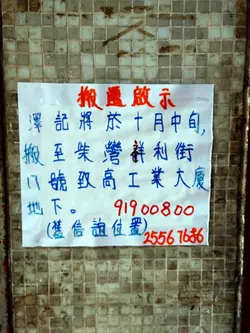 搬遷啟示
澤記將於十月中旬,
搬至柴灣祥利街
17號致高工業大廈
地下。 91900800
(舊信誼位置) 25567686